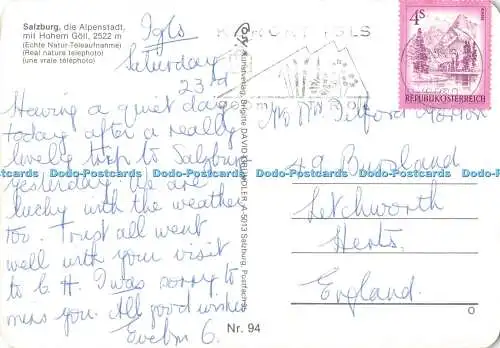 Salzburg, die Alpenstadt,
mit Hohem Göll, 2522 m
(Echte Natur-Teleaufnahme)
(Real nature telephoto)
(une vraie téléphoto)
Igls
Saturday
23rd
Having a quiet day
today after a really
lovely trip to Salzburg
yesterday. We are
lucky with the weather
too. Trust all went
well with your visit
to C. H. I was sorry to
miss you. All good wishes
Evelyn G.
Nr. 94
Kunstverlag Brigitte DAVID A-5013 Salzburg, Postfach
KURORT IGLS
4S
REPUBLIK ÖSTERREICH
Telford
49
Letchworth
Herts,
England.
Dodo-Postcards Dodo-Postcards Dodo-Postcards Dodo-Postcards Dodo-Postcards
Dodo-Postcards Dodo-Postcards Dodo-Postcards Dodo-Postcards Dodo-Postcards